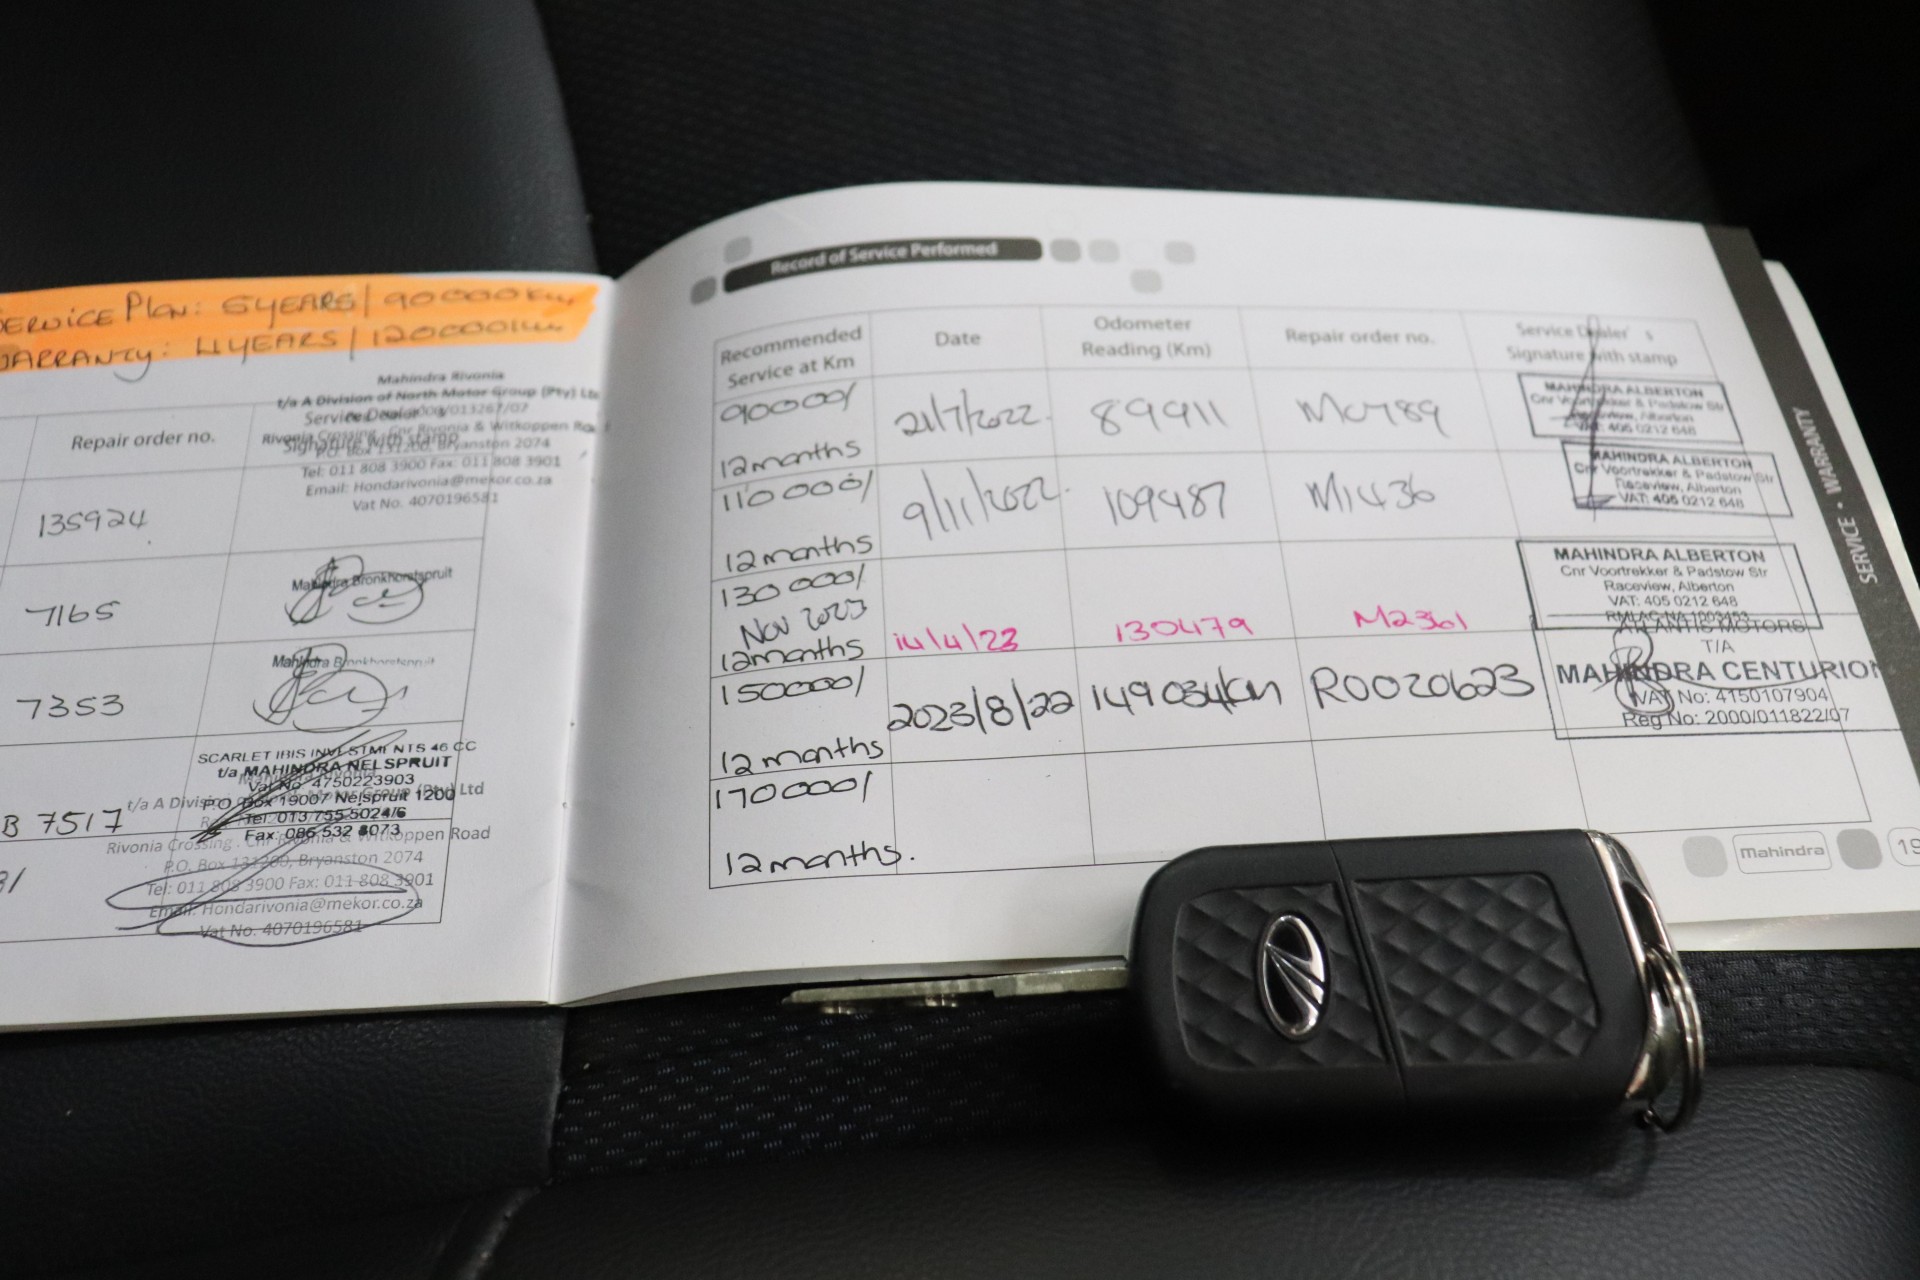 SERVICE PLAN: 5YEARS/90000Km
WARRANTY: 4YEARS/120000Km
Mahindra Rivonia
t/a A Division of North Motor Group (Pty) Ltd
Repair order no.
Service Dealer's
Signature with stamp
Rivonia Crossing . Cnr Rivonia & Witkoppen Road
P.O. Box 131200, Bryanston 2074
Tel: 011 808 3900 Fax: 011 808 3901
Email: Hondarivonia@mekor.co.za
Vat No. 4070196581
135924
7165
Mahindra Bronkhorstspruit
7353
Mahindra Bronkhorstspruit
SCARLET IBIS INVESTMENTS 46 CC
t/a MAHINDRA NELSPRUIT
Vat No: 4750223903
P.O. Box 19007 Nelspruit 1200
Tel: 013 755 5024/6
Fax: 086 532 8073
B 7517
t/a A Division of North Motor Group (Pty) Ltd
Rivonia Crossing . Cnr Rivonia & Witkoppen Road
P.O. Box 131200, Bryanston 2074
Tel: 011 808 3900 Fax: 011 808 3901
Email: Hondarivonia@mekor.co.za
Vat No. 4070196581
Record of Service Performed
Recommended Service at Km
Date
Odometer Reading (Km)
Repair order no.
Service Dealer's
Signature with stamp
90000/ 12months
21/7/2022.
89911
M0789
MAHINDRA ALBERTON
Cnr Voortrekker & Padstow Str
Raceview, Alberton
VAT: 405 0212 648
110000/ 12months
9/11/2022.
109487
M1436
MAHINDRA ALBERTON
Cnr Voortrekker & Padstow Str
Raceview, Alberton
VAT: 405 0212 648
130000/ Nov 2023 12months
14/4/23
130479
M2361
MAHINDRA ALBERTON
Cnr Voortrekker & Padstow Str
Raceview, Alberton
VAT: 405 0212 648
150000/ 12months
2023/8/22
149034km
RO020623
ATLANTIS MOTORS
T/A
MAHINDRA CENTURION
VAT No: 4150107904
Reg No: 2000/011822/07
170000/ 12months.
Mahindra
19
SERVICE • WARRANTY